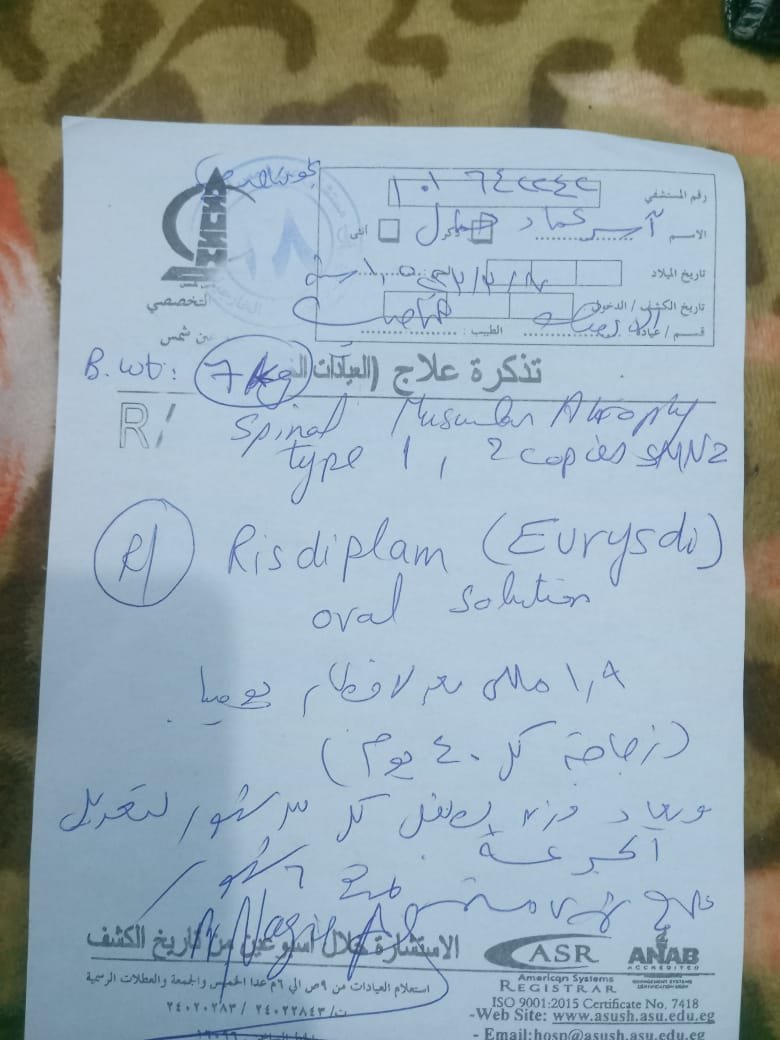 رقم المستشفى
الاسم آسر عماد ذكر أنثى
تاريخ الميلاد
تاريخ الكشف / الدخول
قسم / عيادة الطبيب:
التخصصي
عين شمس
تذكرة علاج (العيادات
B. wt: 7 kg
R/ Spinal Muscular Atrophy
type 1, 2 copies SMN2
R/ Risdiplam (Eurysdi)
oral solution
١,٨ مللى بعد الافطار يوميا
(زجاجة كل ٤٠ يوم)
ويعاد وزن الطفل كل ٣ شهور لتعديل
الجرعة
٦ شهور
الاستشارة خلال أسبوعين من تاريخ الكشف
استعلام العيادات من ٩ص الي ٦م عدا الخميس والجمعة والعطلات الرسمية
ت/ ٢٤٠٢٢٨٤٣ / ٢٤٠٢٠٢٨٣
ASR
American Systems
REGISTRAR
ANAB
ACCREDITED
MANAGEMENT SYSTEMS
CERTIFICATION BODY
ISO 9001:2015 Certificate No, 7418
-Web Site: www.asush.asu.edu.eg
- Email:hosp@asush.asu.edu.eg